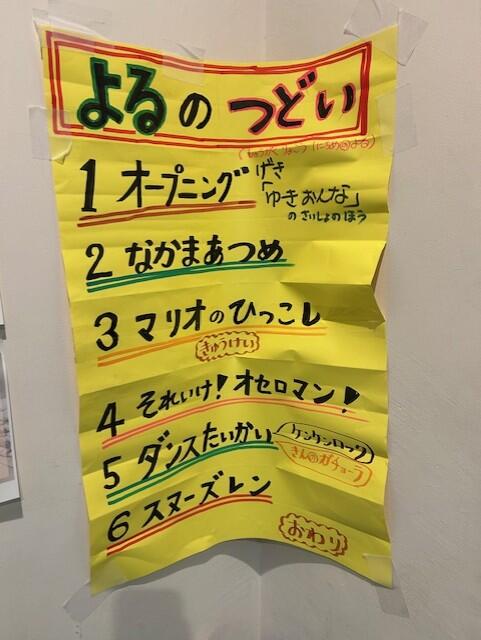 よるのつどい
(しゅうがくりょこう(にちめ@よる)
1 オープニング げき
「ゆきおんな」
のさいしょのほう
2 なかまあつめ
3 マリオのひっこし
きゅうけい
4 それいけ!オセロマン!
5 ダンスたいかい ケンケンロック
きんのガチョーラ
6 スヌーズレン
おわり